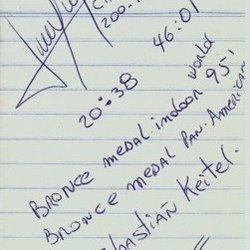 200-
46:01
20:38
BRONCE MEDAL indoor world 95'
BRONCE MEDAL PAN-AMERICAN
bastian Keitel.